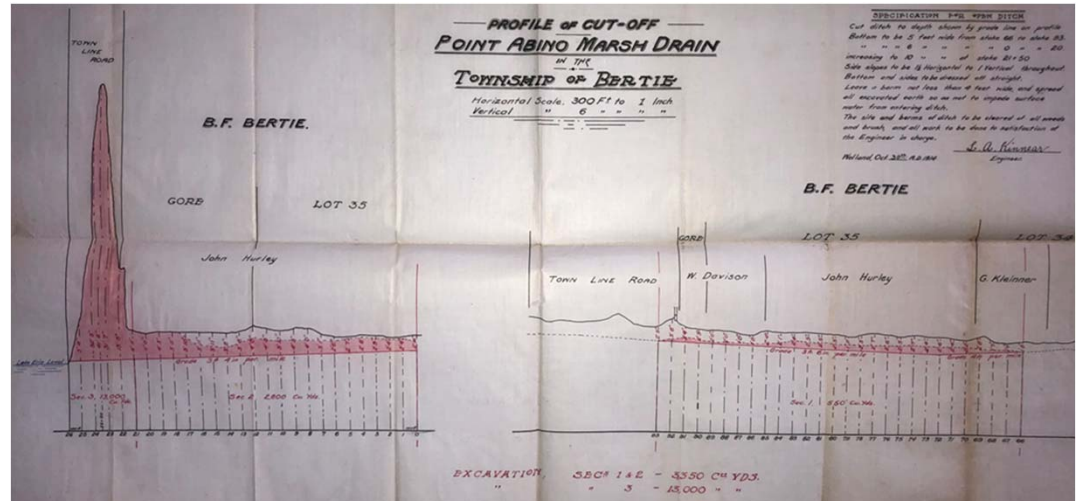 PROFILE OF CUT-OFF
POINT ABINO MARSH DRAIN
IN THE
TOWNSHIP OF BERTIE
Horizontal Scale, 300 Ft to 1 Inch
Vertical " 6 " " " "
SPECIFICATION FOR OPEN DITCH
Cut ditch to depth shown by grade line on profile
Bottom to be 5 feet wide from stake 66 to stake 93.
" " " 6 " " " 0 " 20
increasing to 10 " " at stake 21+50
Side slopes to be 1½ Horizontal to 1 Vertical throughout.
Bottom and sides to be dressed off straight.
Leave a berm not less than 4 feet wide, and spread
all excavated earth so as not to impede surface
water from entering ditch.
The site and berms of ditch to be cleared of all weeds
and brush, and all work to be done to satisfaction of
the Engineer in charge.
Welland, Oct. A.D. 1914
Engineer
TOWN
LINE
ROAD
B.F. BERTIE.
GORE
LOT 35
John Hurley
B.F. BERTIE
GORE
LOT 35
LOT 34
TOWN LINE ROAD
W. Davison
John Hurley
Lake Erie Level
per mile
per mile
per mile
Sec. 3, 13,000
Cu. Yds.
Sec. 2, Cu. Yds.
Sec. 1, Cu. Yds.
EXCAVATION, SECN 1 & 2 - 3350 CU YDS.
" " 3 - 13,000 " "